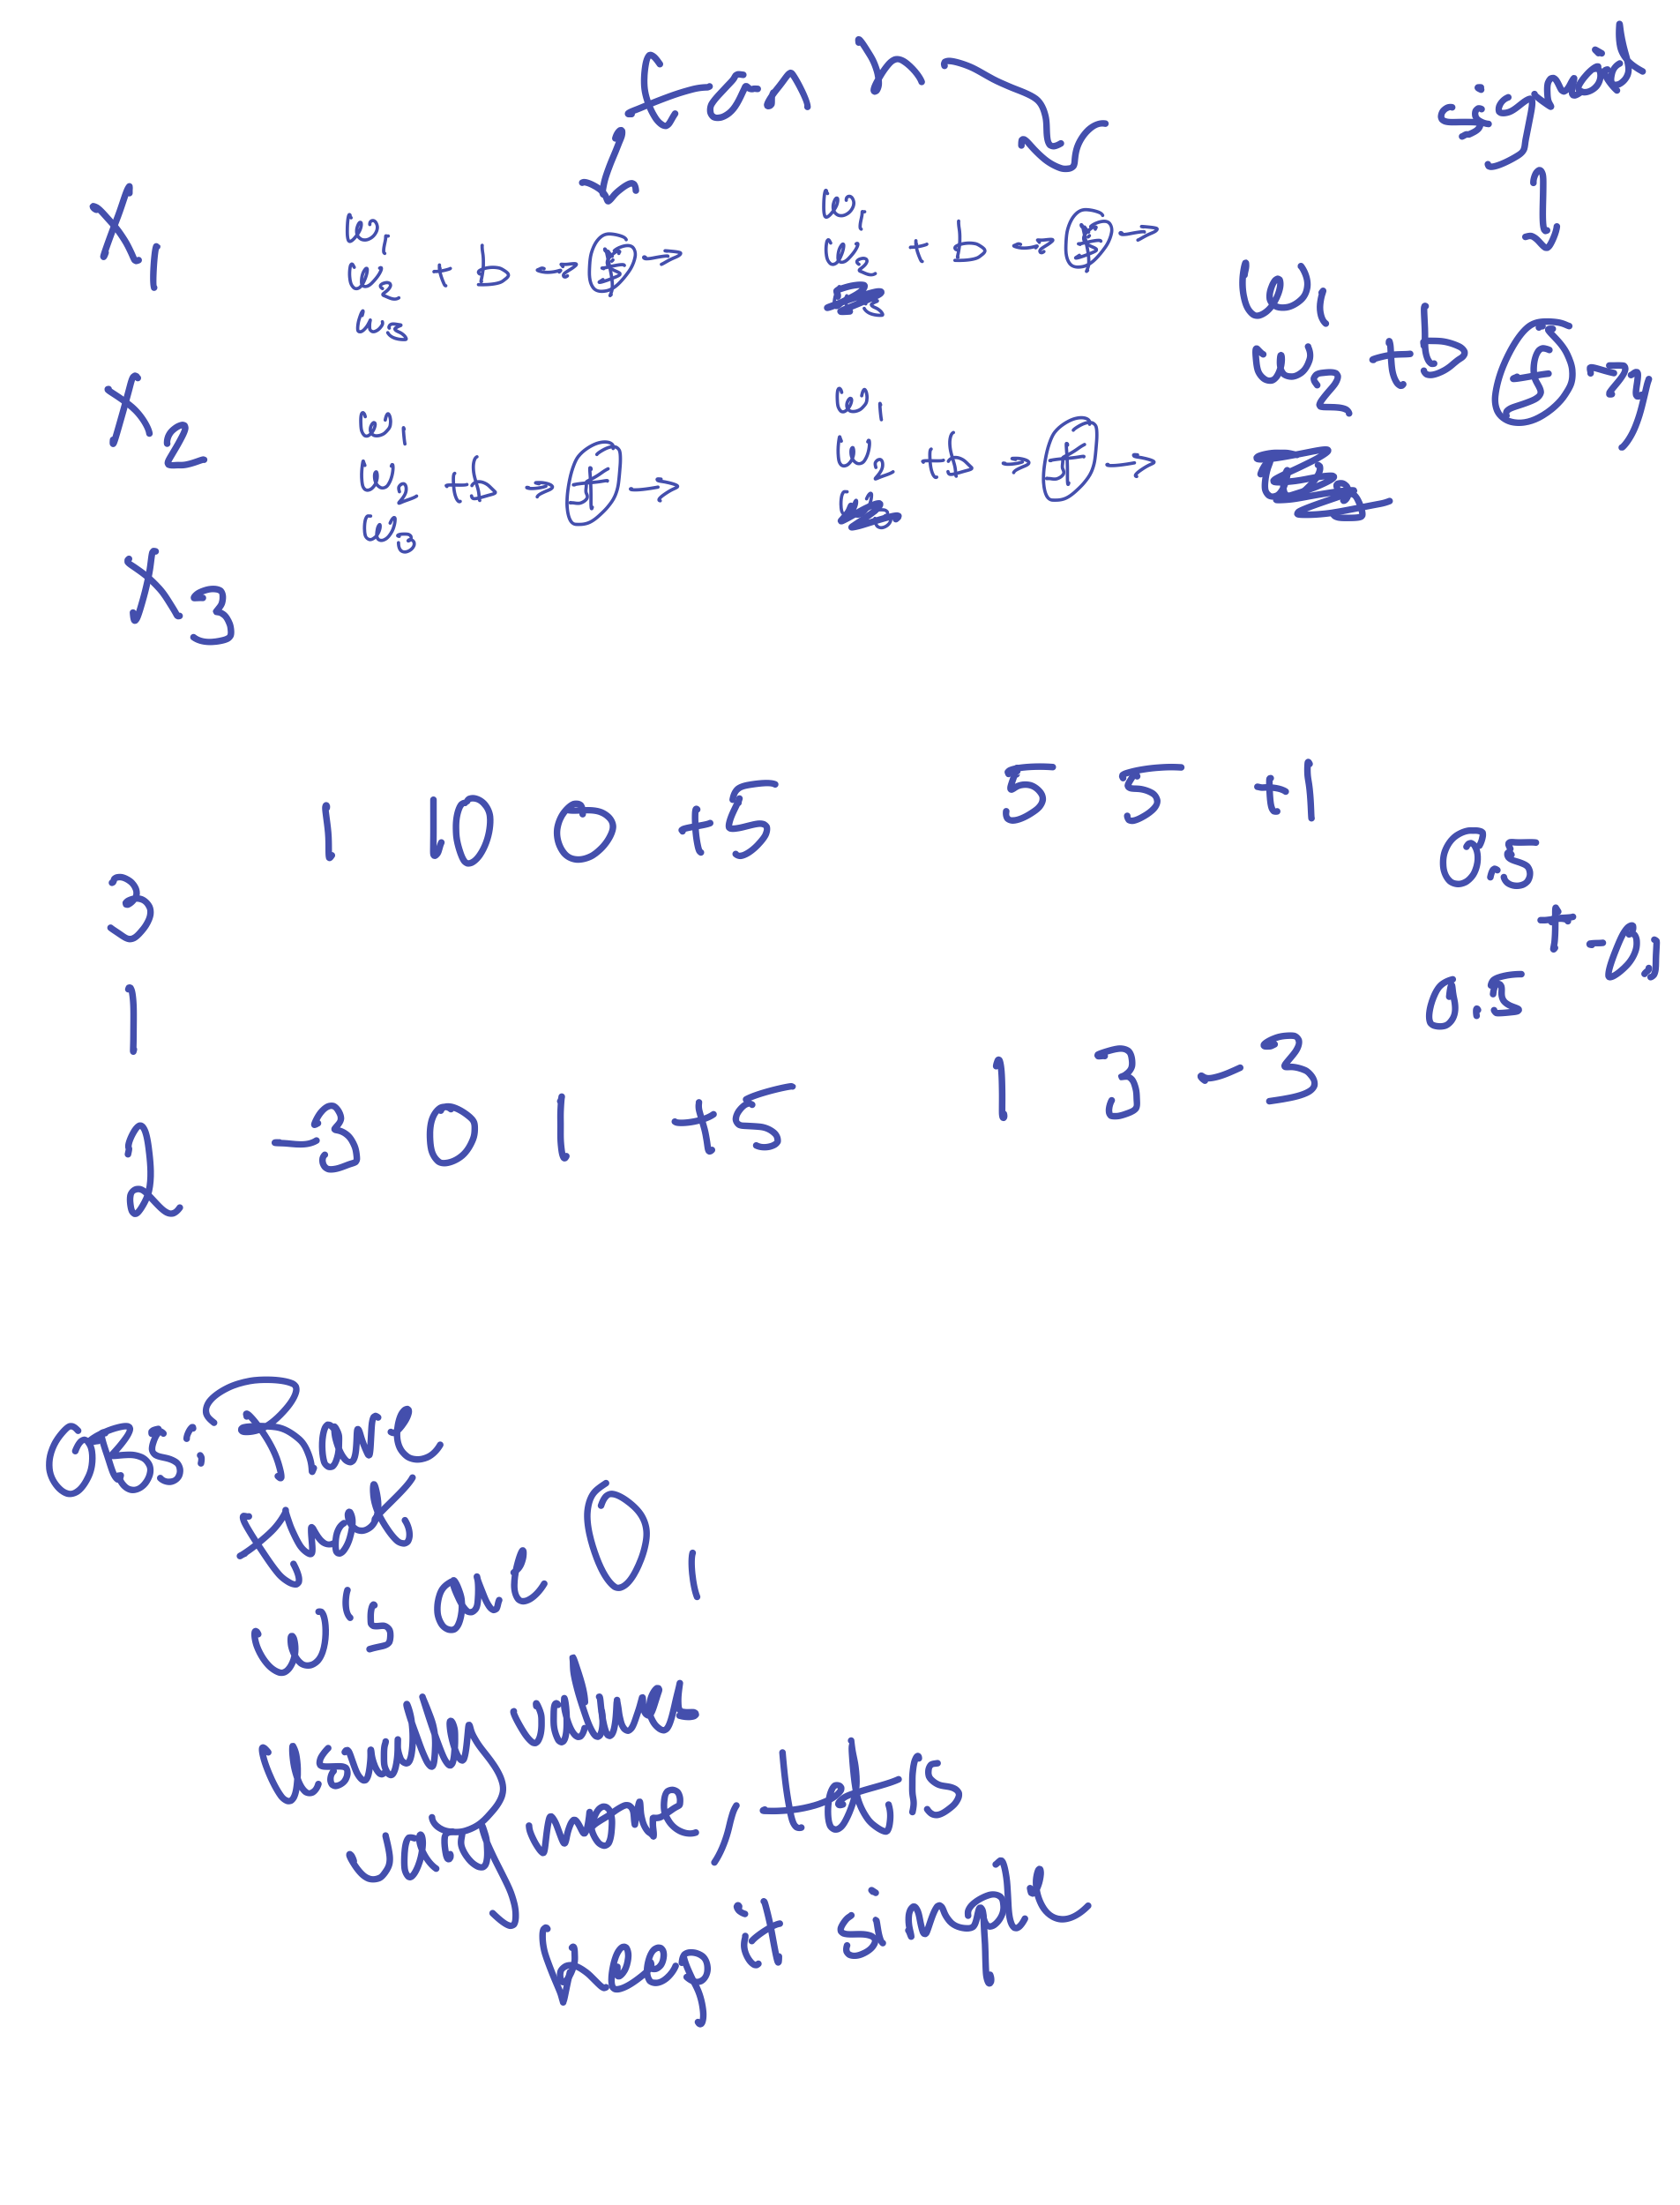 tan h
sigmoid
x₁ w₁ w₂ w₃ + b → f → w₁ w₂ + b → f →
w₁ w₂ + b f → y
x₂ w₁ w₂ w₃ + b → f → w₁ w₂ + b → f →
x₃
1 10 0 +5 5 5 +1
3 0.5
+ -0,1
1 0.5
2 -3 0 1 +5 1 3 -3
OBS: Rare
that
w's are 0,
usually values
vary more, let's
keep it simple